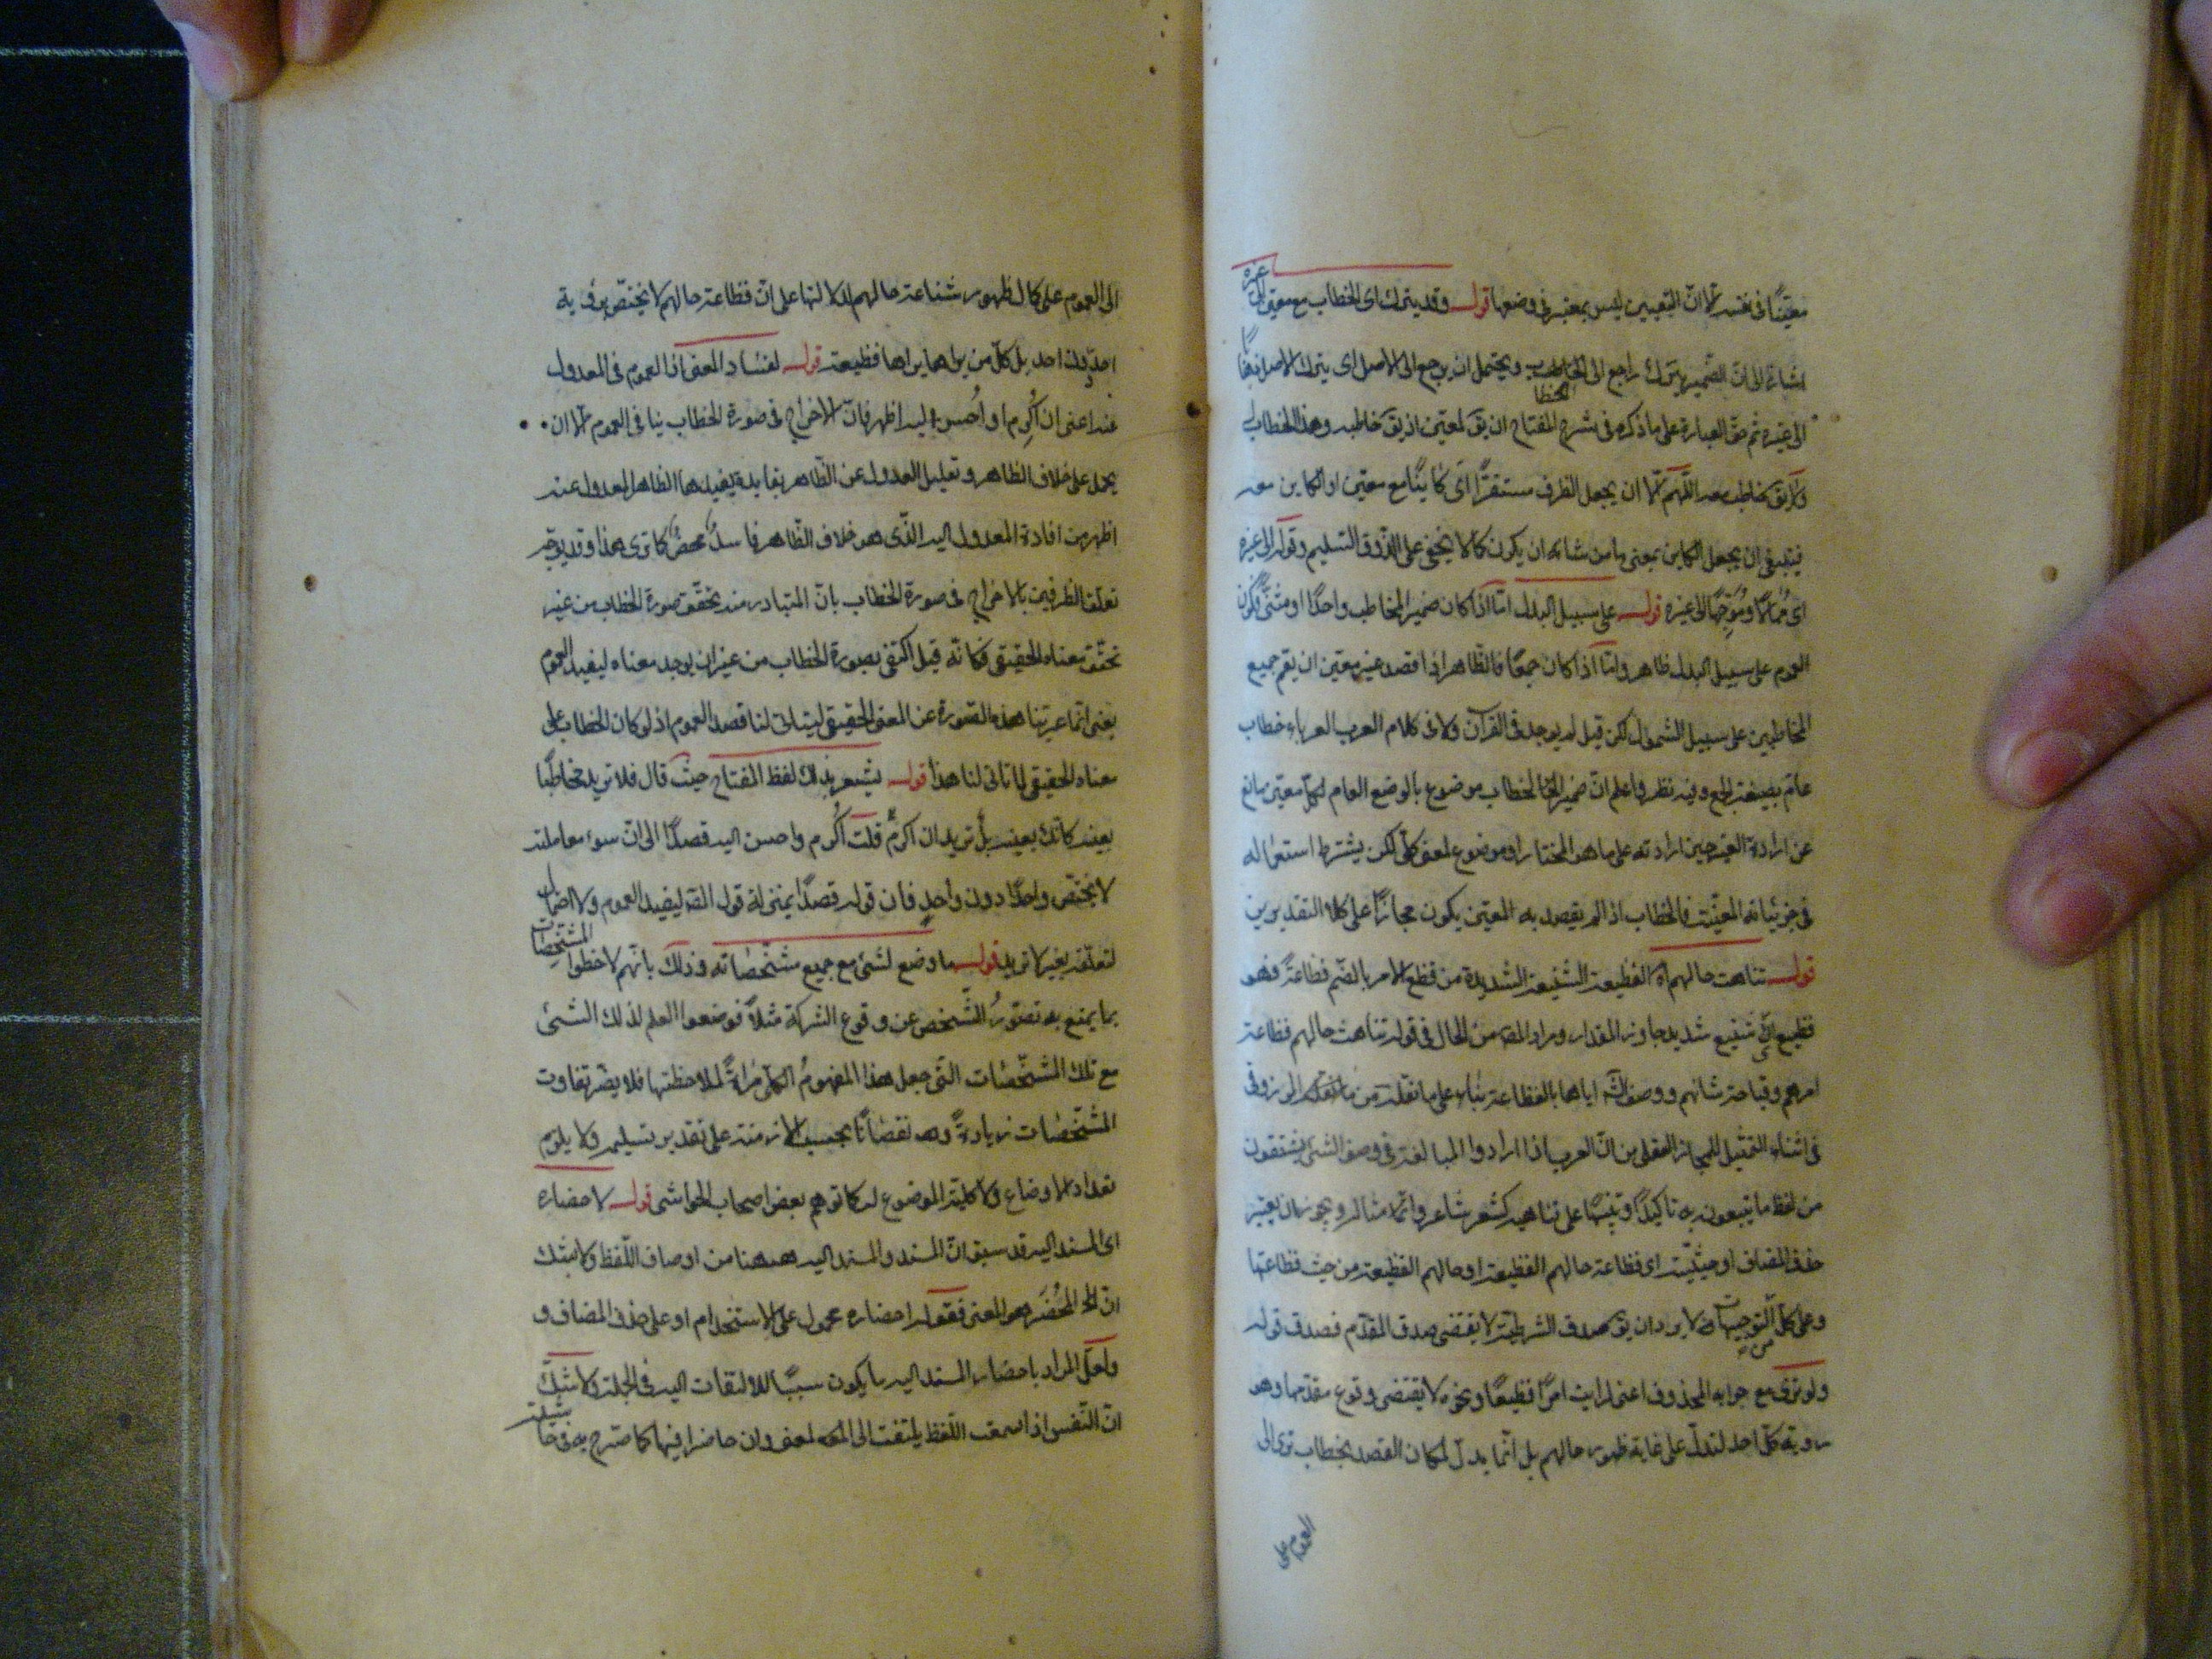 معيّنًا في نفسه الّا انّ التعيين ليس بمعتبر في وضعها قوله وقد يترك اى الخطاب مع معيّن الى غيره
اشارة الى انّ الضمير يترك راجع الى الخطاب ويحتمل ان يرجع الى الاصل اى يترك الاصل ايضًا
الى غيره ثم حقّ العبارة على ما ذكره في شرح المفتاح ان يق لمعيّن اذ يق خاطبه وهذا الخطاب له
ولا يق خاطب معه اللّهمّ الّا ان يجعل الظرف مستقرًّا اى كاينًا مع معيّن او الكاين معه
فينبغي ان يجعل الكاين بمعنى ما من شانه ان يكون كما لا يخفى على الذّوق السليم وقوله الى غيره
اى مُمالًا ومُوَجّهًا الى غيره قوله على سبيل البدل امّا اذا كان ضمير المخاطب واحدًا او مثنّى فكون
العموم على سبيل البدل ظاهر وامّا اذا كان جمعًا فالظّاهر اذا قصد غير معيّن ان يعمّ جميع
المخاطبين على سبيل الشمول لكن قيل لم يوجد في القرآن ولا في كلام العرب العرباء خطاب
عامّ بصيغة الجمع وفيه نظر واعلم انّ ضمير الخطاب موضوع بالوضع العام لكلّ معيّن مانع
عن ارادة الغير حين ارادته على ما هو المختار او موضوع لمعنى كلّي لكن يشترط استعماله
في جزئياته المعيّنة فالخطاب اذا لم يقصد به المعيّن يكون مجازًا على كلا التقديرين
قوله تناهت حالهم اه الفظيعة الشنيعة الشديدة من فظع الامر بالضّم فظاعةً فهو
فظيع اى شنيع شديد جاوز المقدار ومراد المص من الحال في قوله تناهت حالهم فظاعة
امرهم وقباحة شانهم ووصف الش اياها بالفظاعة بناء على ما نقله المرزوقي
في اثناء التمثيل للمجاز العقلي من انّ العرب اذا ارادوا المبالغة في وصف الشئ يشتقون
من لفظه ما يتبعونه به تاكيدًا وتنبيهًا على تناهيه كشعر شاعر وامثاله ويجوز ان يعتبر
حذف المضاف او حيثيّة اى فظاعة حالهم الفظيعة او حالهم الفظيعة من حيث فظاعتها
وعلى كلّ التوجيهات لا يراد ان يق صدق الشرطيّة لا يقتضي صدق المقدّم فصدق قوله
ولو ترى مع جوابه المحذوف اعنى لرايت امرًا فظيعًا ونحوه لا يقتضي وقوع مقدّمها وهو
رؤية كلّ احد لتدلّ على غاية ظهور حالهم بل انّما يدلّ لمكان القصد بخطاب ترى الى
العموم على
الى العموم على كمال ظهور شناعة حالهم لدلالتها على انّ فظاعة حالهم لا يختصّ برؤية
احد دون احد بل كلّ من يراها يراها فظيعة قوله لفساد المعنى اذ العموم في المعدول
عنه اعنى ان اُكرِم او اُحسِن اليه اظهر فانّ الاخراج في صورة الخطاب ينافي العموم الّا ان
يحمل على خلاف الظاهر وتعليل العدول عن الظّاهر بفايدة يفيدها الظاهر المعدول عنه
اظهر من افادة المعدول اليه الذّى هو خلاف الظّاهر فاسدٌ محضٌ كما ترى هذا وقد يوجّه
تعلّق الظرفين بالاخراج في صورة الخطاب بانّ المتبادر منه تحقّق صورة الخطاب من غير
تحقّق معناه الحقيقي فكانّه قيل اكتفى بصورة الخطاب من غير ان يوجد معناه ليفيد العموم
يعنى انّما عبّرنا هذه الصّورة عن المعنى الحقيقي ليتاتى لنا قصد العموم اذ لو كان الخطاب على
معناه الحقيقي لما تاتى لنا هذا قوله يشعر بذلك لفظ المفتاح حيث قال فلا تريد مخاطبًا
بعينه كانّك بعينه بل تريد ان اكرم قلت اُكرم واحسن اليه قصدًا الى انّ سوء معاملته
لا يختصّ واحدًا دون واحدٍ فان قوله قصدًا بمنزلة قول المص ليفيد العموم ولا احتمال
لتعلّقه بغير لا تريد قوله ما وضع لشئ مع جميع مشخّصاته وذلك بانّهم لاحظوا المشخّصات
بما يمنع به تصوّرُ الشّخص عن وقوع الشركة مثلاً فوضعوا العلم لذلك الشئ
مع تلك المشخّصات التّى جعل هذا المفهومُ الكلّي مرآةً لملاحظتها فلا يضرّ تفاوت
المشخّصات زيادةً ونقصانًا بحسب الازمنة على تقدير تسليمه ولا يلزم
تعداد الاوضاع ولا كليّة الموضوع له كما توهم بعض اصحاب الحواشي قوله لاحضاره
اى المسند اليه قد سبق انّ المسند والمسند اليه ههنا من اوصاف اللّفظ ولا شك
انّ المُحْضَر هو المعنى فقوله احضاره محمول على الاستخدام او على حذف المضاف و
ولعلّ المراد باحضار المسند اليه ما يكون سببًا للالتفات اليه في الجملة ولا شكّ
انّ النّفس اذا سمعت اللّفظ يلتفت الى المعنى وان كان حاضرا فيها كما صرّح به في حاشيته